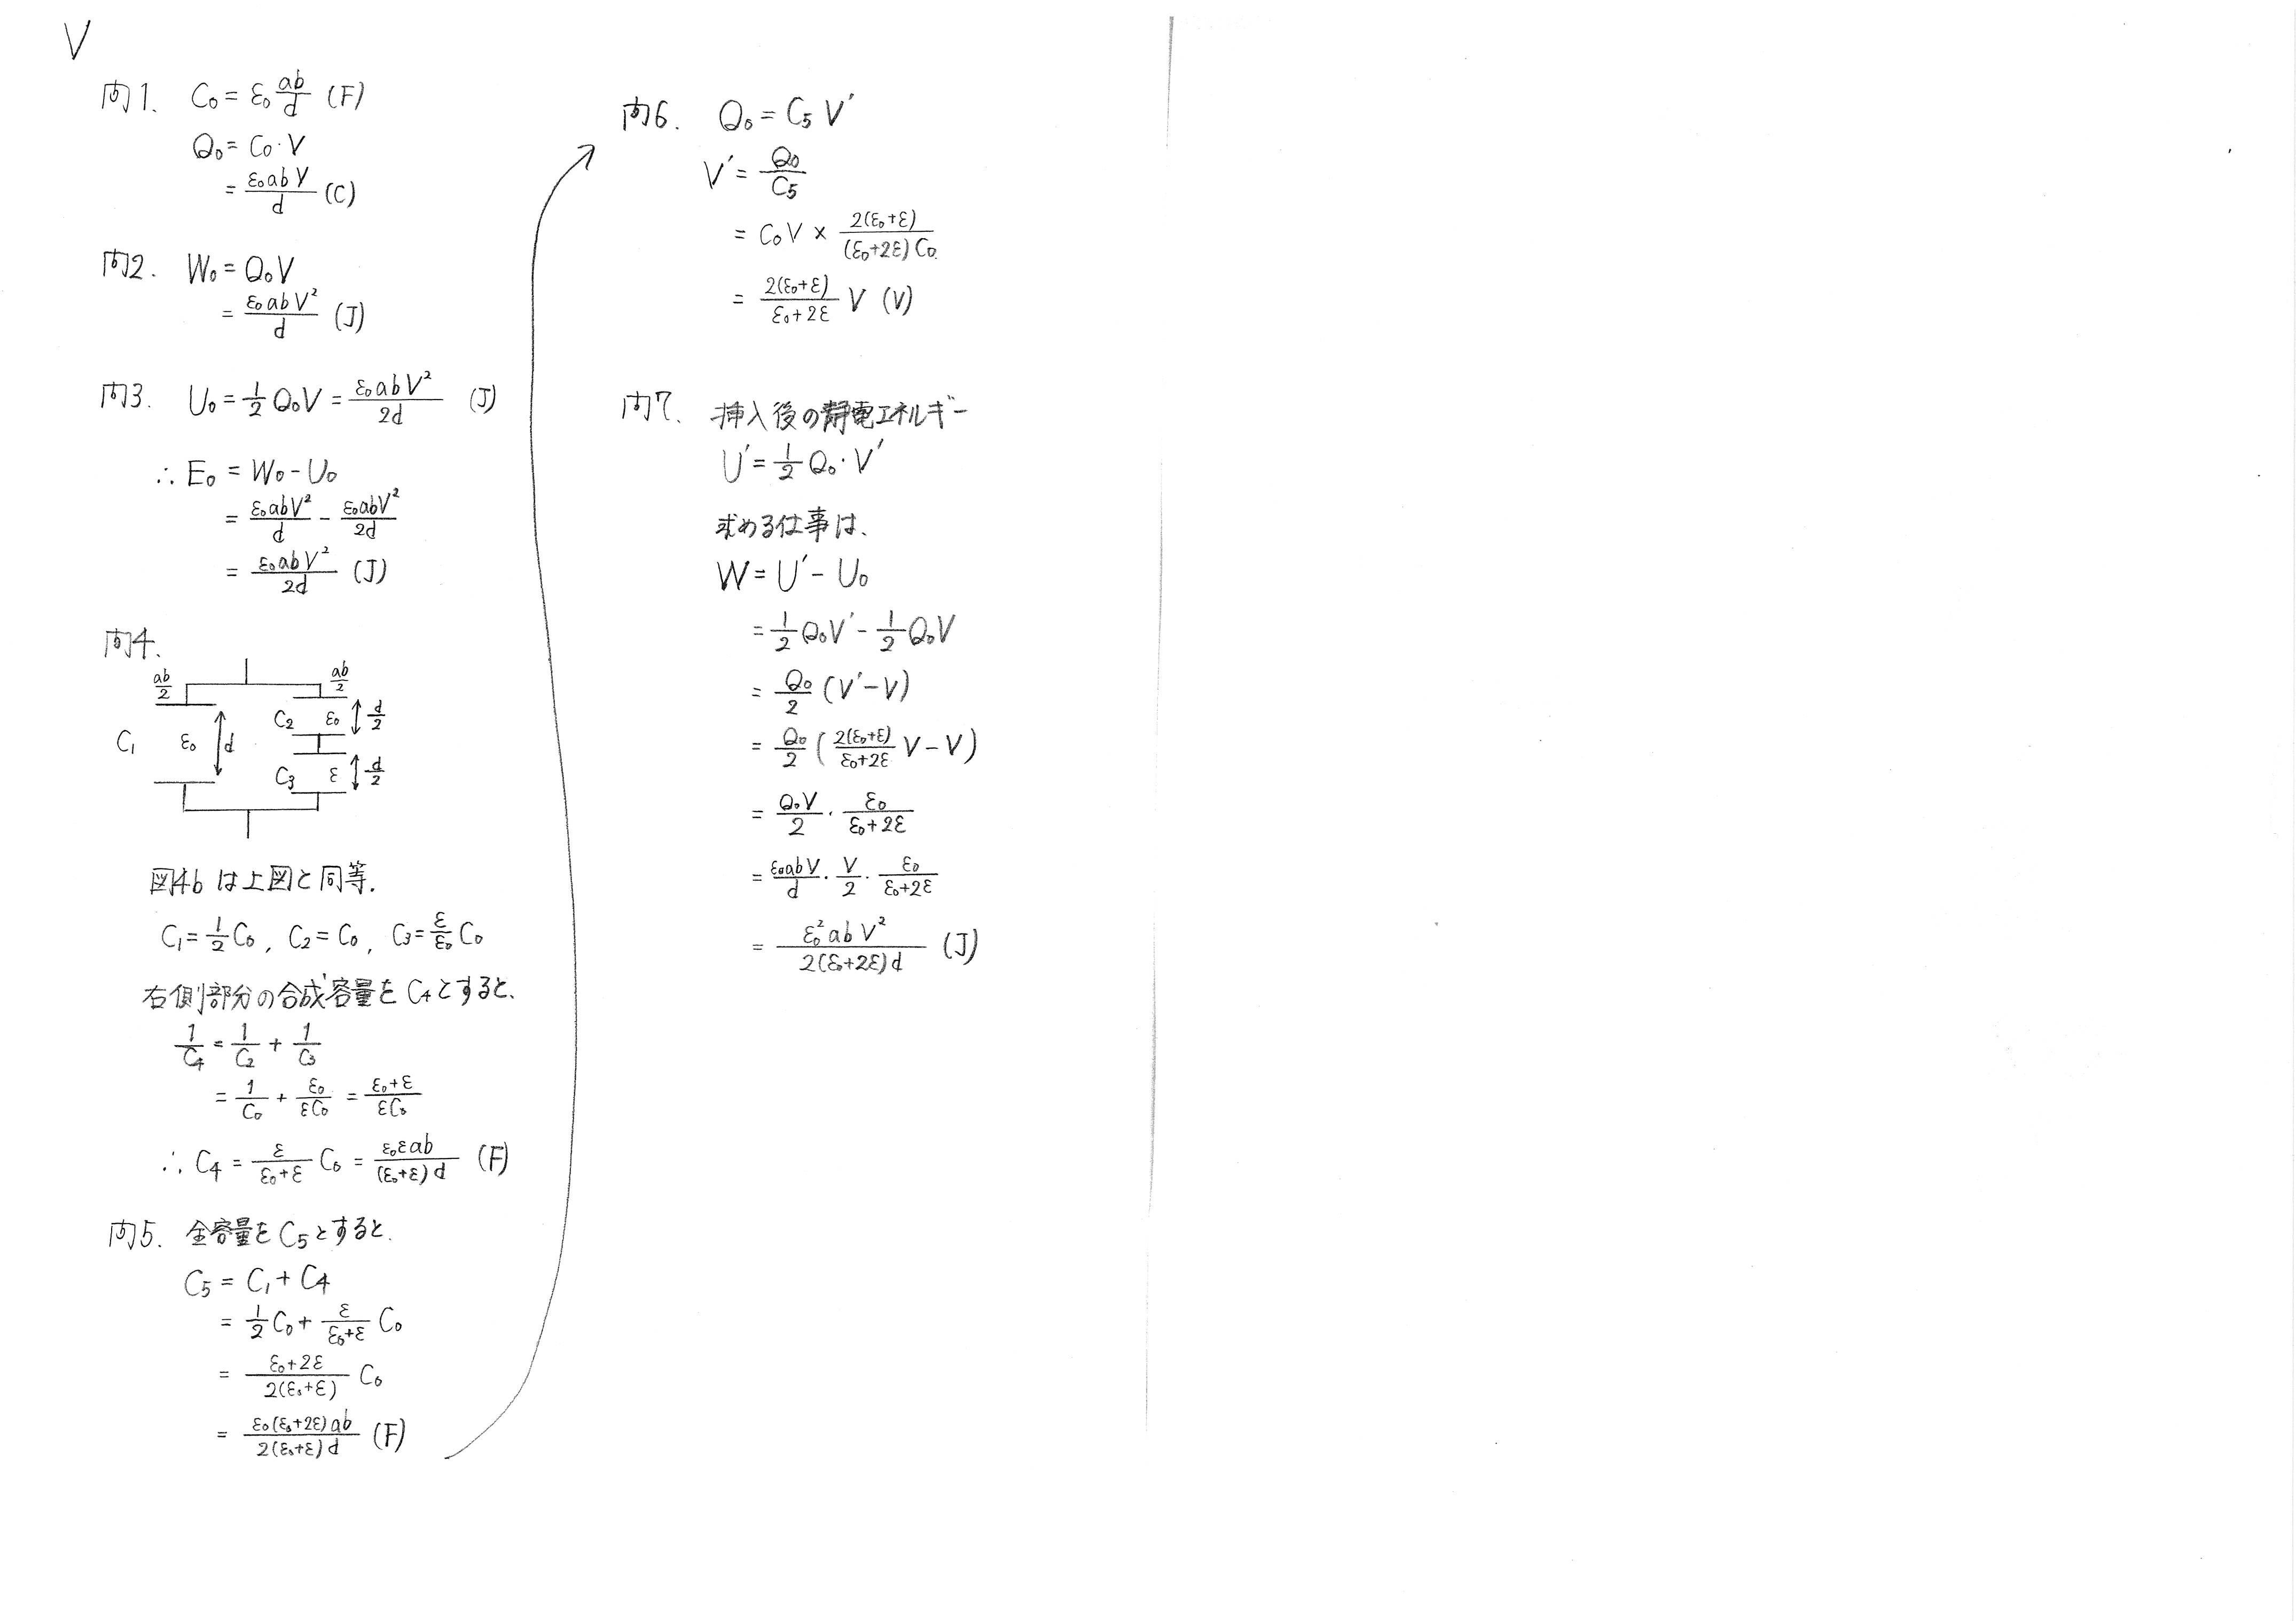 V
問1. C₀ = ε₀ ab/d (F)
Q₀ = C₀・V
= ε₀abV/d (C)
問2. W₀ = Q₀V
= ε₀abV²/d (J)
問3. U₀ = 1/2 Q₀V = ε₀abV²/2d (J)
∴ E₀ = W₀ - U₀
= ε₀abV²/d - ε₀abV²/2d
= ε₀abV²/2d (J)
問4.
ab/2 ab/2
C₂ ε₀ d/2
C₁ ε₀ d
C₃ ε d/2
図4b は上図と同等.
C₁ = 1/2 C₀, C₂ = C₀, C₃ = ε/ε₀ C₀
右側部分の合成容量を C₄ とすると、
1/C₄ = 1/C₂ + 1/C₃
= 1/C₀ + ε₀/εC₀ = (ε₀+ε)/εC₀
∴ C₄ = ε/(ε₀+ε) C₀ = ε₀εab/(ε₀+ε)d (F)
問5. 全容量を C₅ とすると.
C₅ = C₁ + C₄
= 1/2 C₀ + ε/(ε₀+ε) C₀
= (ε₀+2ε)/2(ε₀+ε) C₀
= ε₀(ε₀+2ε)ab/2(ε₀+ε)d (F)
問6. Q₀ = C₅ V′
V′ = Q₀/C₅
= C₀V × 2(ε₀+ε)/(ε₀+2ε)C₀
= 2(ε₀+ε)/(ε₀+2ε) V (V)
問7. 挿入後の静電エネルギー
U′ = 1/2 Q₀・V′
求める仕事は、
W = U′ - U₀
= 1/2 Q₀V′ - 1/2 Q₀V
= Q₀/2 (V′-V)
= Q₀/2 (2(ε₀+ε)/(ε₀+2ε) V - V)
= Q₀V/2 ・ ε₀/(ε₀+2ε)
= ε₀abV/d ・ V/2 ・ ε₀/(ε₀+2ε)
= ε₀²abV²/2(ε₀+2ε)d (J)